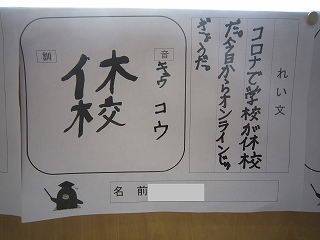 れい文
コロナで学校が休校
だ。今日からオンラインじゅ
ぎょうだ。
音
キュウ コウ
訓
休校
名 前